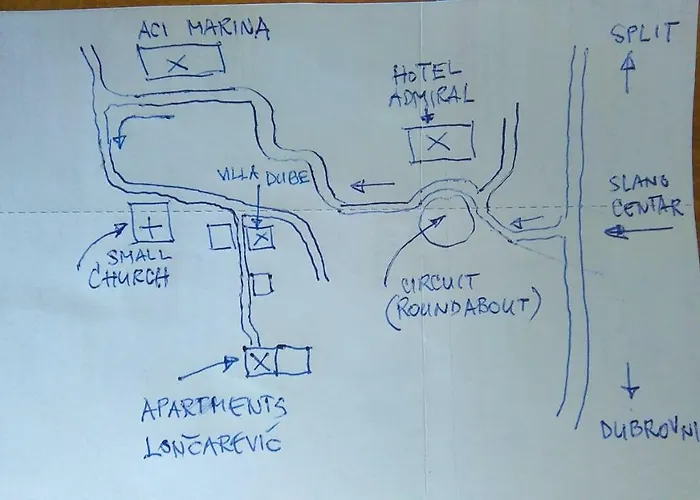 ACI MARINA
SPLIT
HOTEL
ADMIRAL
VILLA DUBE
SLANO
CENTAR
SMALL
CHURCH
CIRCUIT
(ROUNDABOUT)
APARTMENTS
LONČAREVIĆ
DUBROVNI